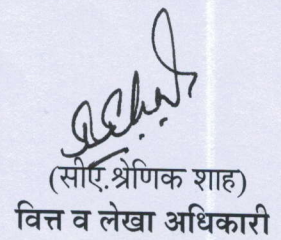 (सीए.श्रेणिक शाह)
वित्त व लेखा अधिकारी